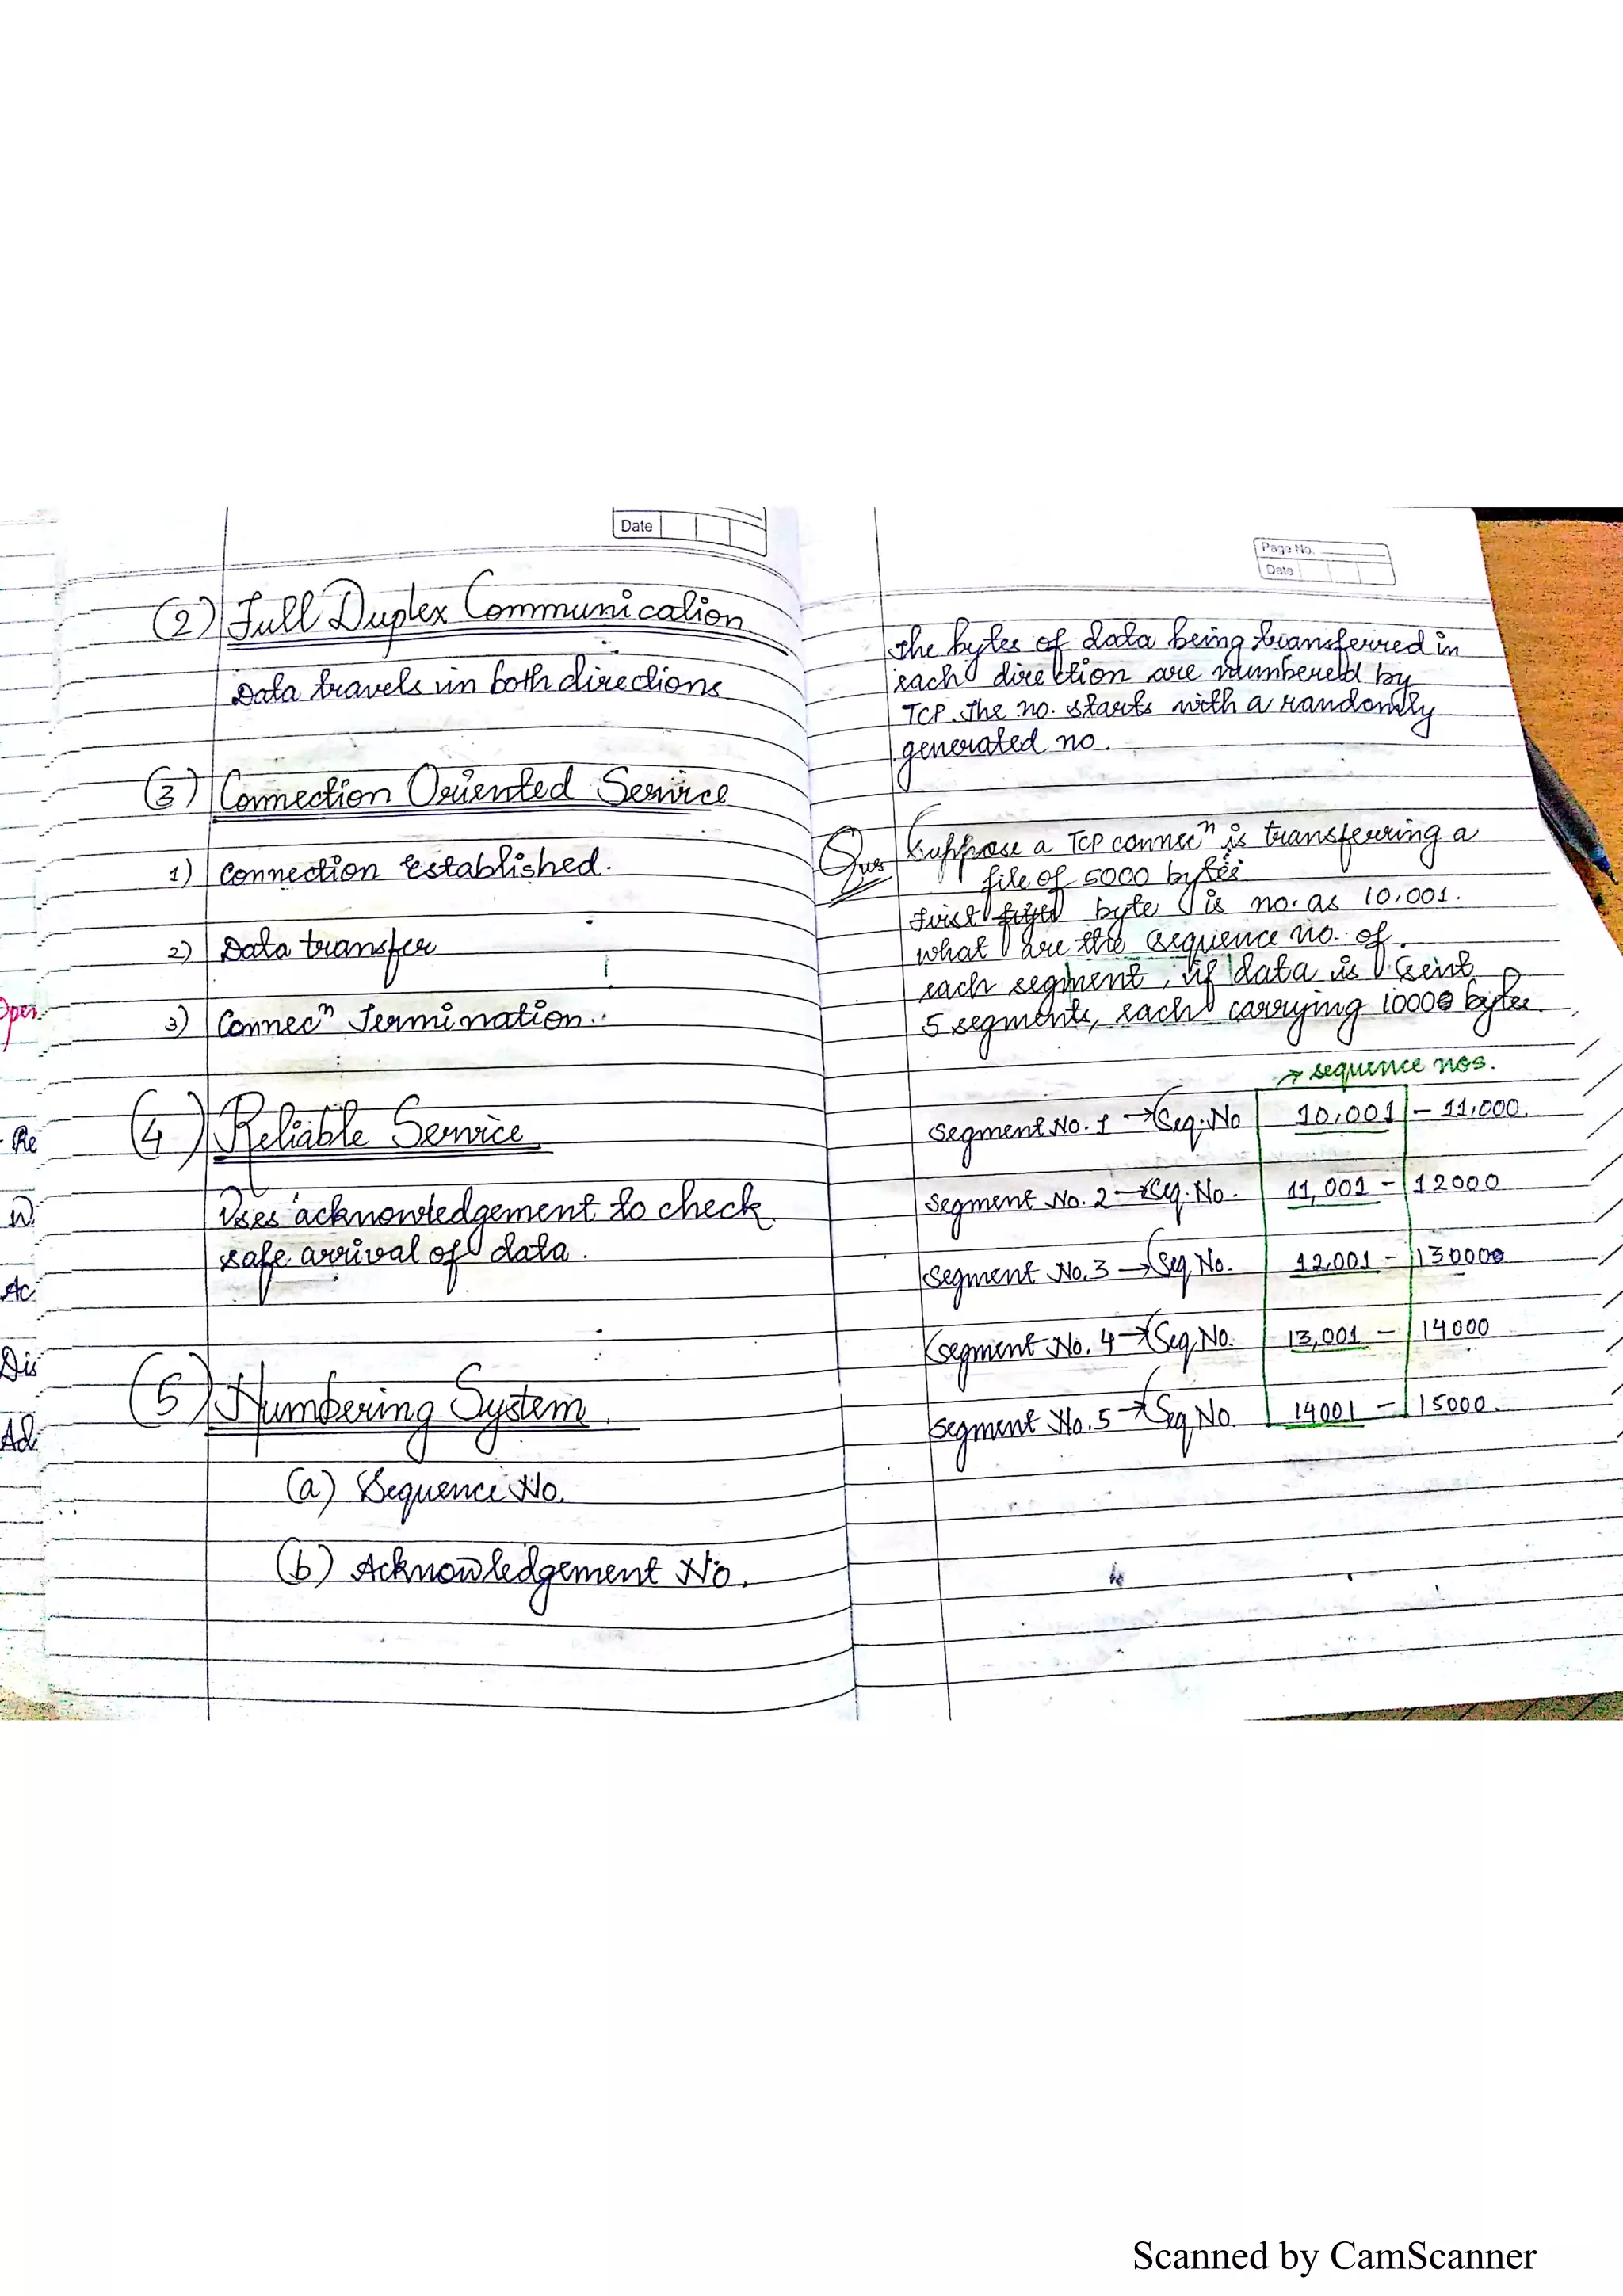 Date
(2) Full Duplex Communication
Data travels in both directions
(3) Connection Oriented Service
1) Connection established.
2) Data transfer
3) Connecⁿ Termination.
(4) Reliable Service
Uses acknowledgement to check
safe arrival of data.
(5) Numbering System
(a) Sequence No.
(b) Acknowledgement No.
Re
Ac
Dis
Ad
Page No.
Date
The bytes of data being transferred in
each direction are numbered by
TCP. The no. starts with a randomly
generated no.
Ques Suppose a TCP connecⁿ is transferring a
file of 5000 bytes
first byte is no. as 10,001.
what are the sequence no. of
each segment, if data is sent
5 segments, each carrying 1000 bytes
→ sequence nos.
Segment No. 1 → Seq. No 10,001 - 11,000.
Segment No. 2 → Seq. No. 11,001 - 12000
Segment No. 3 → Seq No. 12,001 - 13000
Segment No. 4 → Seq No. 13,001 - 14000
Segment No. 5 → Seq No. 14001 - 15000.
Scanned by CamScanner